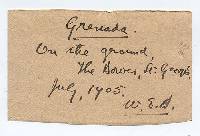 Grenada.
On the ground,
The Bower, St. George's
July, 1905.
W.E.B.